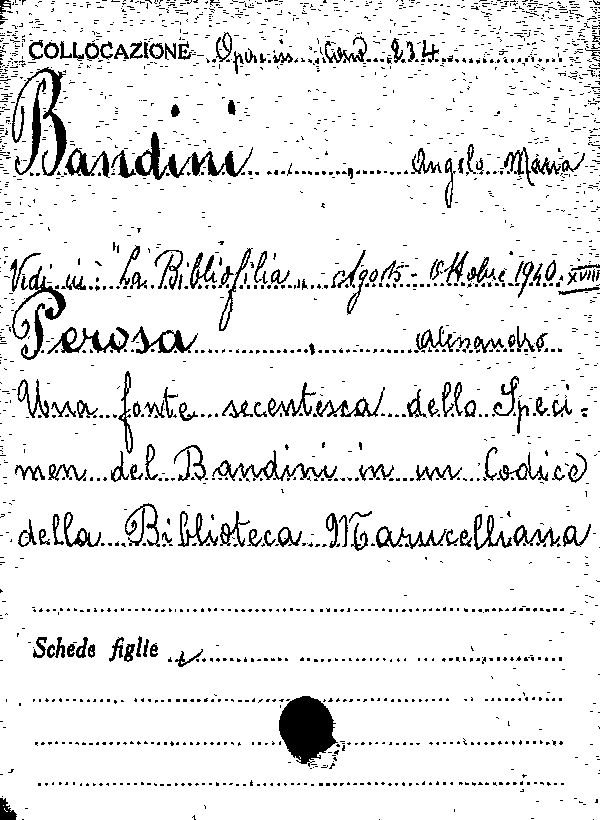 COLLOCAZIONE Opere in Cons 234
Bandini, Angelo Maria
Vedi in: "La Bibliofilia„ Agosto - Ottobre 1940. XVIII
Perosa, Alessandro
Una fonte secentesca dello Speci=
men del Bandini in un Codice
della Biblioteca Marucelliana
Schede figlie